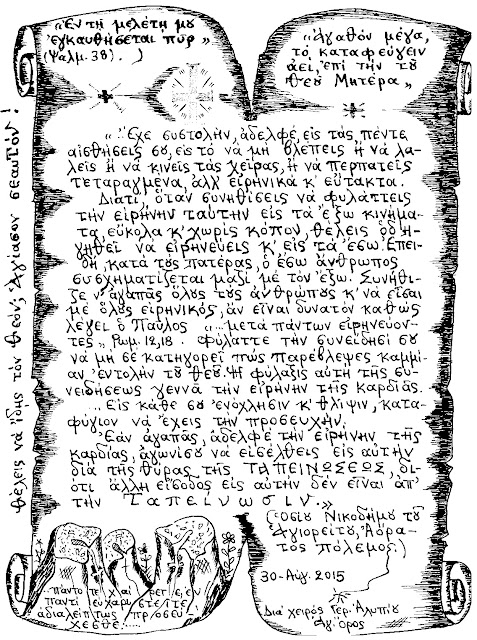 «Ἐν τῇ μελέτῃ μȣ
ἐγκαυθήσεται πῦρ»
(Ψαλμ. 38).
«Ἀγαθὸν μέγα,
τὸ καταφεύγειν
ἀεί, ἐπὶ τὴν τοῦ
Θεοῦ Μητέρα»
Θέλεις νὰ ἴδῃς τὸν Θεόν; Ἁγίασον σεαυτόν!
«Ἔχε συστολήν, ἀδελφέ, εἰς τὰς πέντε
αἰσθήσεις σȣ, εἰς τὸ νὰ μὴ βλέπεις ἢ νὰ λα-
λεῖς ἢ νὰ κινεῖς τὰς χεῖρας, ἢ νὰ περπατεῖς
τεταραγμένα, ἀλλ' εἰρηνικὰ κ' εὔτακτα.
Διατί, ὅταν συνηθίσεις νὰ φυλάττεις
τὴν εἰρήνην ταύτην εἰς τὰ ἔξω κινήμα-
τα, εὔκολα κ' χωρὶς κόπον, θέλεις ὁδη-
γηθεῖ νὰ εἰρηνεύεις κ' εἰς τὰ ἔσω. Ἐπει-
δή, κατὰ τȣς πατέρας, ὁ ἔσω ἄνθρωπος
συσχηματίζεται μαζὶ μὲ τὸν ἔξω. Συνήθι-
ζε ν' ἀγαπᾶς ὅλȣς τȣς ἀνθρώπȣς κ' νὰ εἶσαι
μὲ ὅλȣς εἰρηνικός, ἂν εἶναι δυνατὸν καθὼς
λέγει ὁ Παῦλος «...μετὰ πάντων εἰρηνεύον-
τες», Ρωμ. 12,18. Φύλαττε τὴν συνείδησί σου
νὰ μὴ σὲ κατηγορεῖ πὼς παρέβλεψες καμμί-
αν ἐντολὴν τοῦ Θεοῦ. Ἡ φύλαξις αὐτὴ τῆς συ-
νειδήσεως γεννᾶ τὴν εἰρήνην τῆς καρδίας.
...Εἰς κάθε σου ἐνόχλησιν κ' θλῖψιν, κατα-
φύγιον νὰ ἔχεις τὴν προσευχήν.
Ἐὰν ἀγαπᾶς, ἀδελφὲ τὴν εἰρήνην τῆς
καρδίας, ἀγωνίσου νὰ εἰσέλθεις εἰς αὐτὴν
διὰ τῆς θύρας τῆς ΤΑΠΕΙΝΩΣΕΩΣ, δι-
ότι ἄλλη εἴσοδος εἰς αὐτὴν δὲν εἶναι ἀπ'
τὴν Ταπείνωσιν.»
(Ὁσίου Νικοδήμου τοῦ
Ἁγιορείτου, Ἀόρα-
τος πόλεμος.)
30-Αὐγ. 2015
Διὰ χειρὸς Γερ. Ἀλυπίου
Ἁγ. ὄρος
πάντοτε χαίρετε, ἐν
παντὶ εὐχαριστεῖτε
ἀδιαλείπτως προσεύ-
χεσθε.....